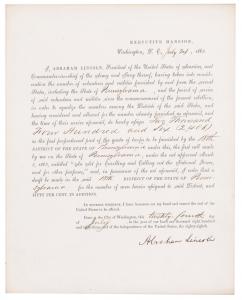 EXECUTIVE MANSION,
Washington, D. C., July 24th, 1863
I, ABRAHAM LINCOLN, President of the United States of America, and
Commander-in-chief of the Army and Navy thereof, having taken into consideration
the number of volunteers and militia furnished by and from the several
States, including the State of Pennsylvania, and the period of service
of said volunteers and militia since the commencement of the present rebellion,
in order to equalize the numbers among the Districts of the said States, and
having considered and allowed for the number already furnished as aforesaid, and
the time of their service aforesaid, do hereby assign Two Thousand
Four Hundred and Six (2,406)
as the first proportional part of the quota of troops to be furnished by the 18th
DISTRICT OF THE STATE OF Pennsylvania under this, the first call
made by me on the State of Pennsylvania, under the act approved March
3, 1863, entitled "An Act for Enrolling and Calling out the National Forces, and
for other purposes," and, in pursuance of the act aforesaid, I order that a
draft be made in the said 18th DISTRICT OF THE STATE OF Penn-
sylvania for the number of men herein assigned to said District, and
FIFTY PER CENT. IN ADDITION.
IN WITNESS WHEREOF, I have hereunto set my hand and caused the seal of the
United States to be affixed.
Done at the City of Washington, this twenty fourth day of
July, in the year of our Lord one thousand eight hundred
and sixty-three, and of the independence of the United States, the eighty-eighth.
Abraham Lincoln